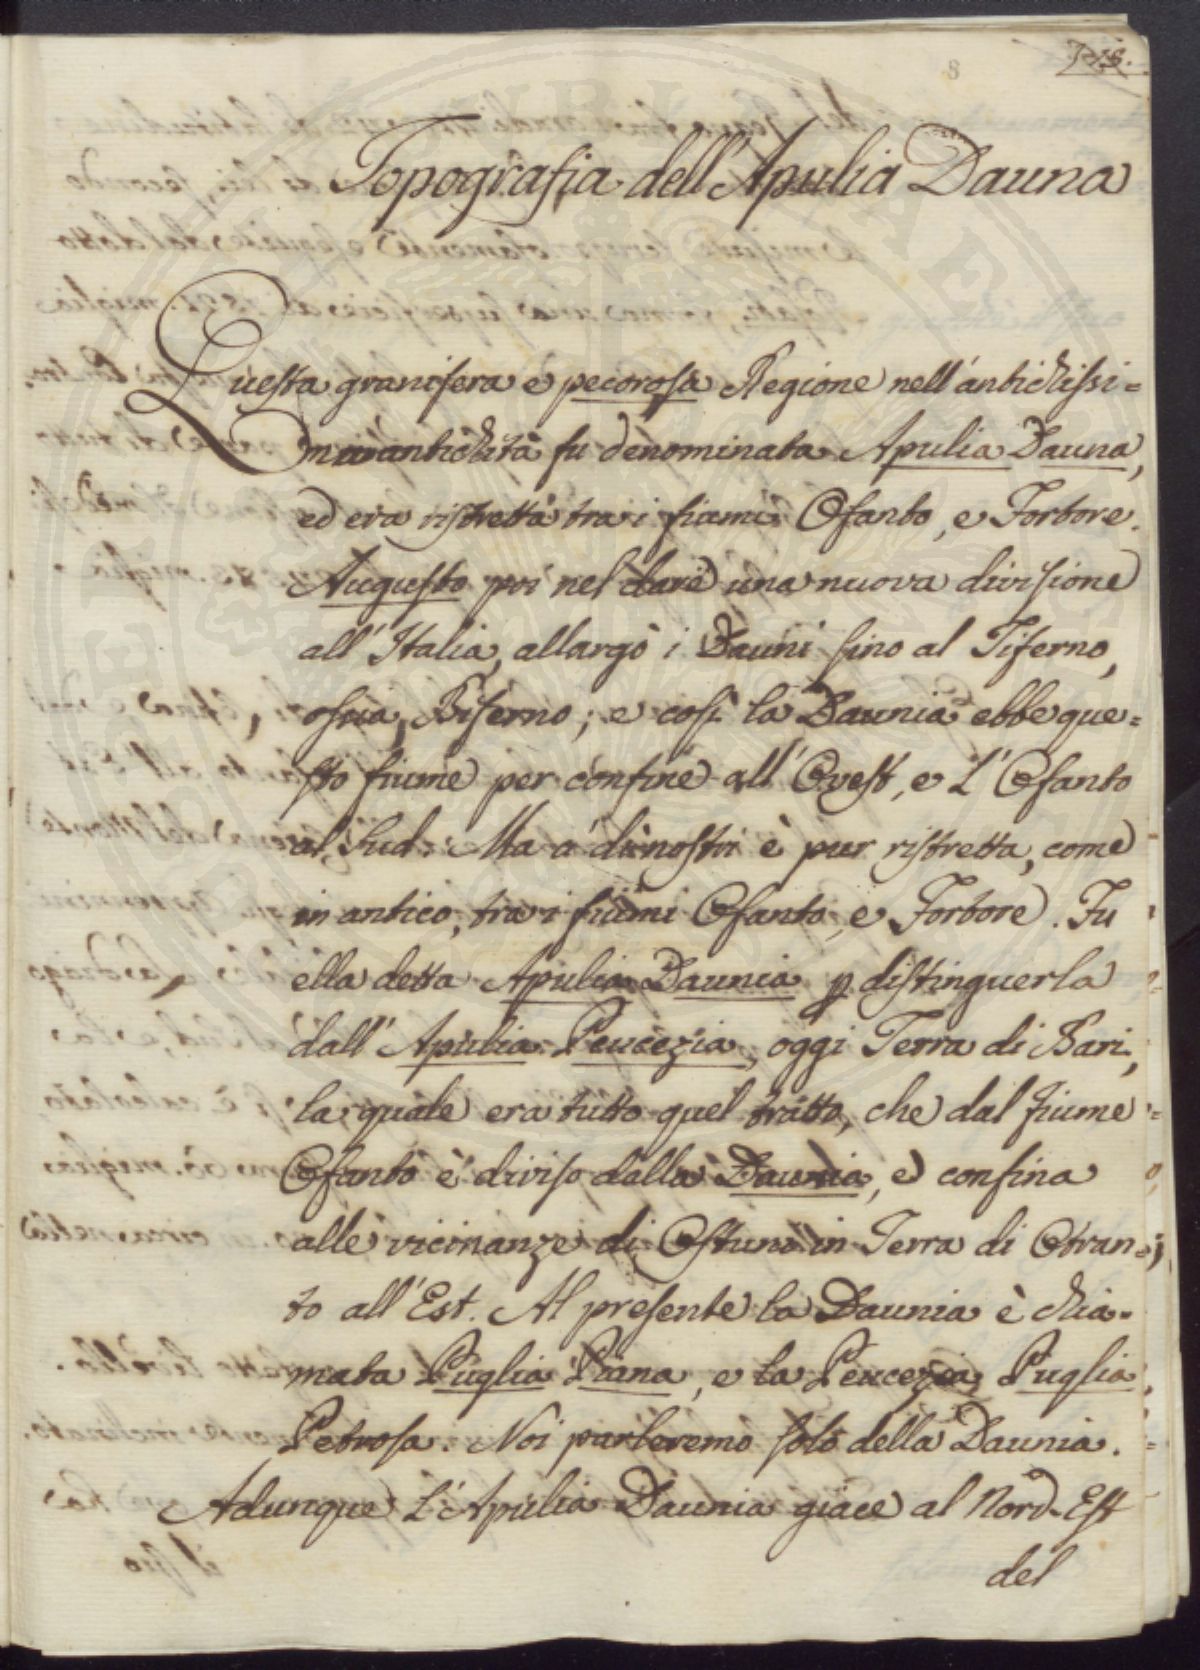 8
Topografia dell'Apulia Dauna
Questa granifera e pecorosa Regione nell'antichissi=
ma antichità fu denominata Apulia Dauna,
ed era ristretta tra i fiumi Ofanto, e Fortore.
Augusto poi nel dare una nuova divisione
all'Italia, allargò i Dauni fino al Tiferno,
ossia, Biferno; e così la Daunia ebbe que=
sto fiume per confine all'Ovest, e l'Ofanto
al Sud. Ma a' dì nostri è pur ristretta, come
in antico, tra i fiumi Ofanto, e Fortore. Fu
ella detta Apulia Daunia p distinguerla
dall'Apulia Peucezia, oggi Terra di Bari,
la quale era tutto quel tratto, che dal fiume
Ofanto è diviso dalla Daunia, e confina
alle vicinanze di Ostuni in Terra di Otran=
to all'Est. Al presente la Daunia è chia=
mata Puglia Piana, e la Peucezia Puglia
Petrosa. Noi parleremo solo della Daunia.
Adunque l'Apulia Daunia giace al Nord-Est
del